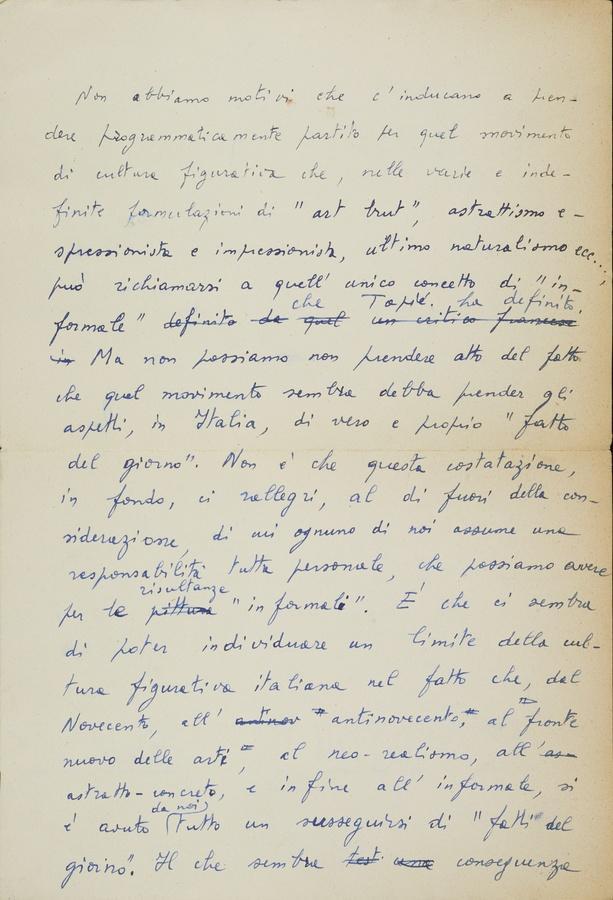 Non abbiamo motivi che c'inducano a pren-
dere programmaticamente partito per quel movimento
di cultura figurativa che, nelle varie e inde-
finite formulazioni di "art brut", astrattismo e-
spressionista e impressionista, ultimo naturalismo ecc...,
può richiamarsi a quell'unico concetto di "in-
che Tapié. ha definito.
formale" definito da quel un critico francese
in Ma non possiamo non prendere atto del fatto
che quel movimento sembra debba prender gli
aspetti, in Italia, di vero e proprio "fatto
del giorno". Non è che questa costatazione,
in fondo, ci rallegri, al di fuori della con-
siderazione, di cui ognuno di noi assume una
responsabilità tutta personale, che possiamo avere
risultanze
per le pitture "informali". È che ci sembra
di poter individuare un limite della cul-
tura figurativa italiana nel fatto che, dal
Novecento, all'antinov "antinovecento," al "fronte
nuovo delle arti", al neo-realismo, all'as-
astratto-concreto, e infine all'informale, si
da noi
è avuto tutto un susseguirsi di "fatti del
giorno". Il che sembra test una conseguenza